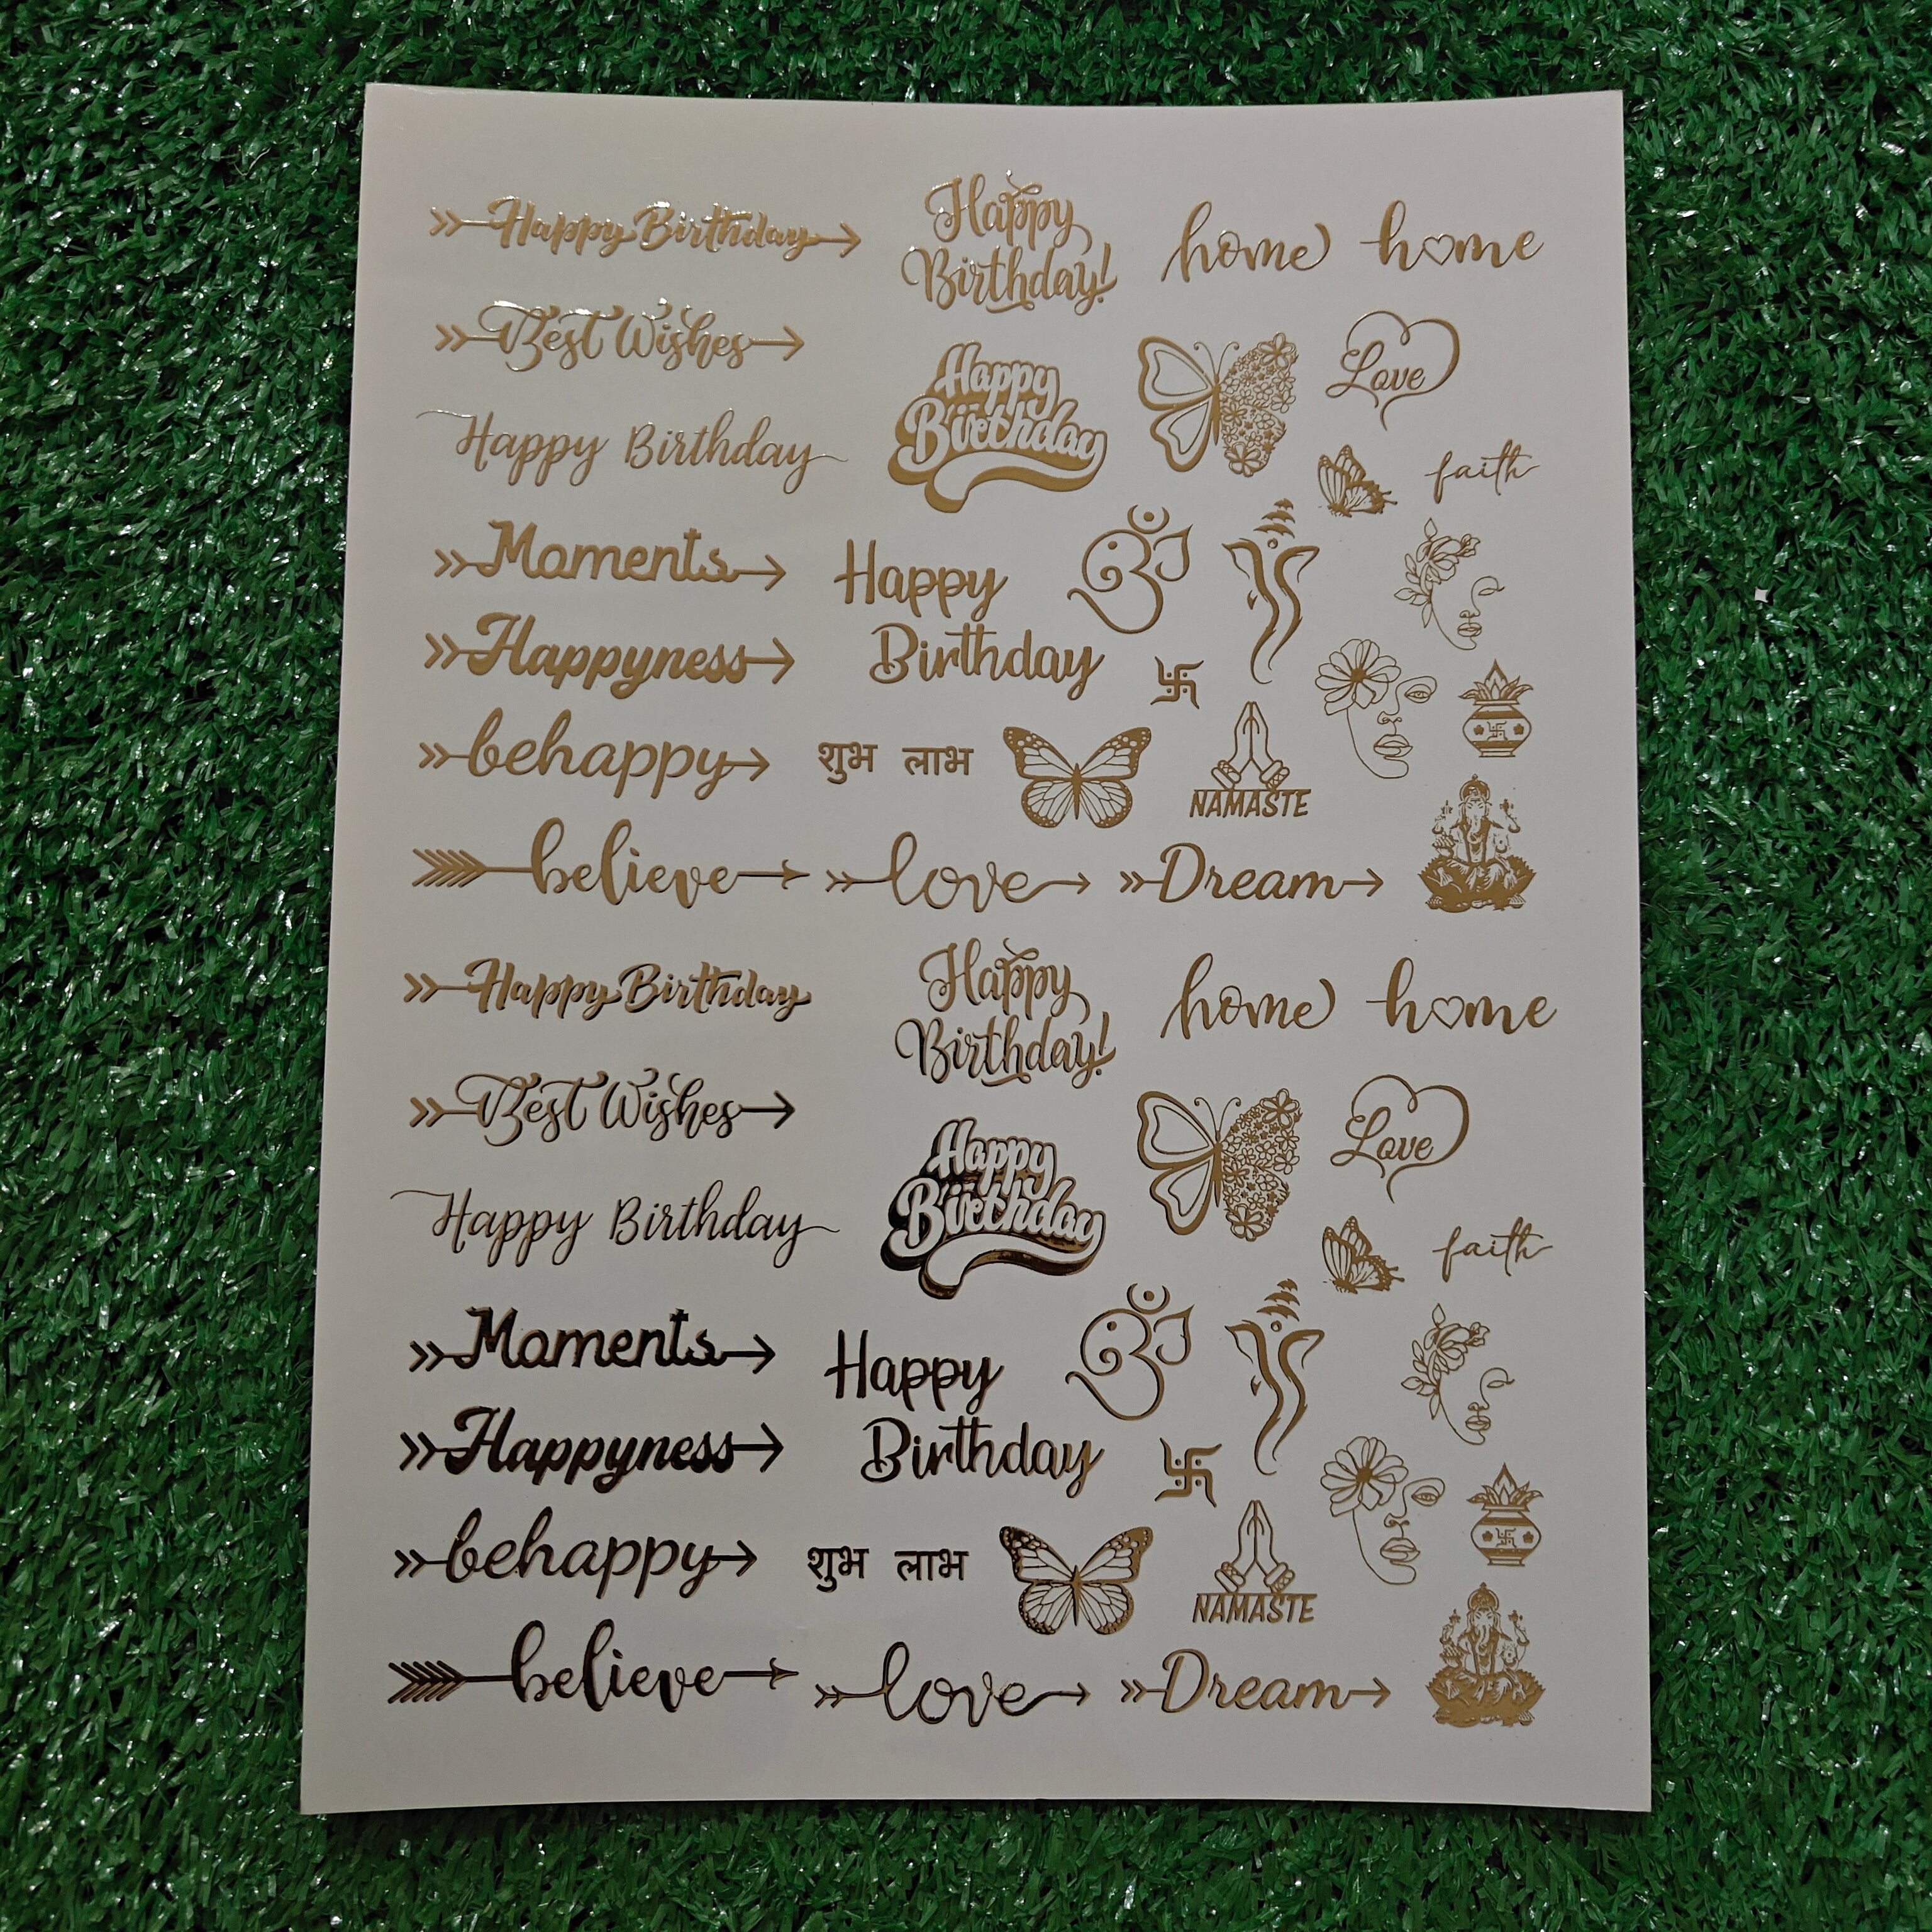 Happy Birthday
Happy
Birthday!
home
home
Best Wishes
Love
Happy
Birthday
Happy Birthday
faith
Moments
Happy
Birthday
Happyness
behappy
शुभ लाभ
NAMASTE
believe
love
Dream
Happy Birthday
Happy
Birthday!
home
home
Best Wishes
Love
Happy
Birthday
Happy Birthday
faith
Moments
Happy
Birthday
Happyness
behappy
शुभ लाभ
NAMASTE
believe
love
Dream